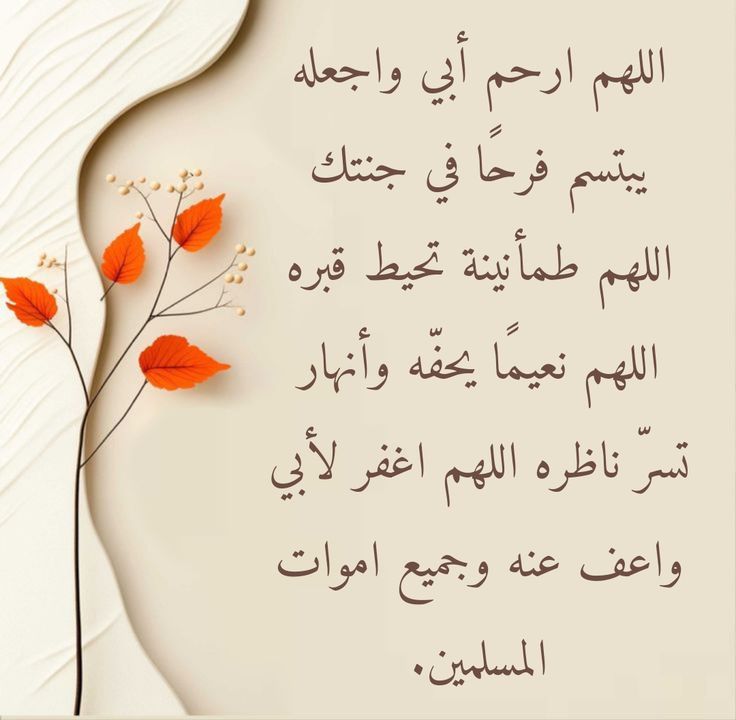 اللهم ارحم أبي واجعله
يبتسم فرحًا في جنتك
اللهم طمأنينة تحيط قبره
اللهم نعيمًا يحفّه وأنهار
تسرّ ناظره اللهم اغفر لأبي
واعف عنه وجميع اموات
المسلمين.